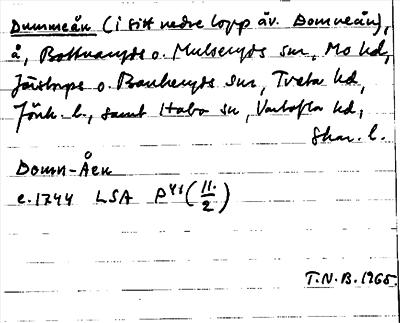 Dummeån (i sitt nedre lopp äv. Domneån),
å, Bottnaryds o. Mulseryds snr, Mo hd,
Järstorps o. Bankeryds snr, Tveta hd,
Jönk. l., samt Habo sn, Vartofta hd,
Skar. l.
Domn-Åen
c. 1744 LSA P41 (11./2)
T.N.B. 1965.